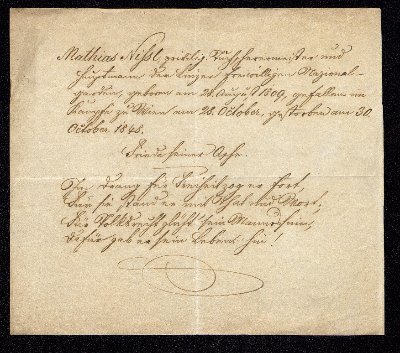 Mathias Nißl, privileg. Tuchscherermeister und
Hauptmann der Linzer freiwilligen Nazional-
garden, geboren am 24. August 1809, gefallen im
Kampfe zu Wien am 28. October, gestorben am 30.
October 1848.
Friede seiner Asche.
Im Drang für Freiheit zog er fort,
Für sie stand er mit That und Wort,
Für Volksrecht glüht' sein Mannessinn,
Dafür gab er sein Leben hin!